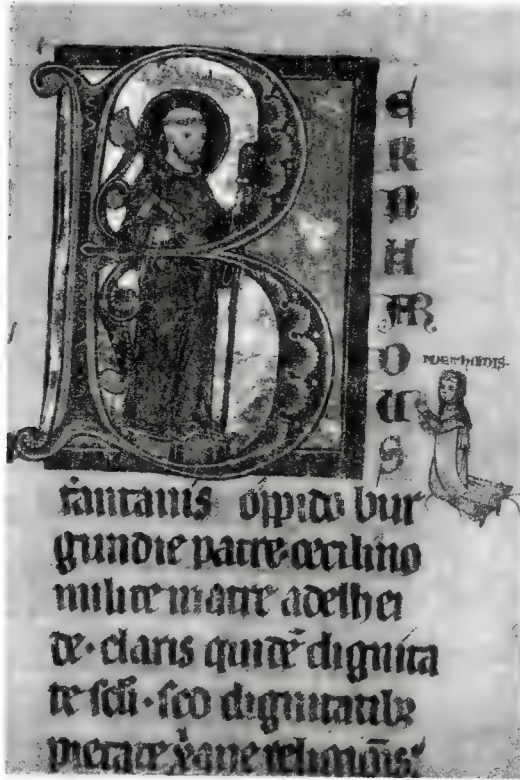 BERNHARDUS
fantanis oppido bur
gundie patre tecilino
milite matre adelhei
de · claris quidē dignita
te scli · sed dignitatibꝫ
pietate religionis